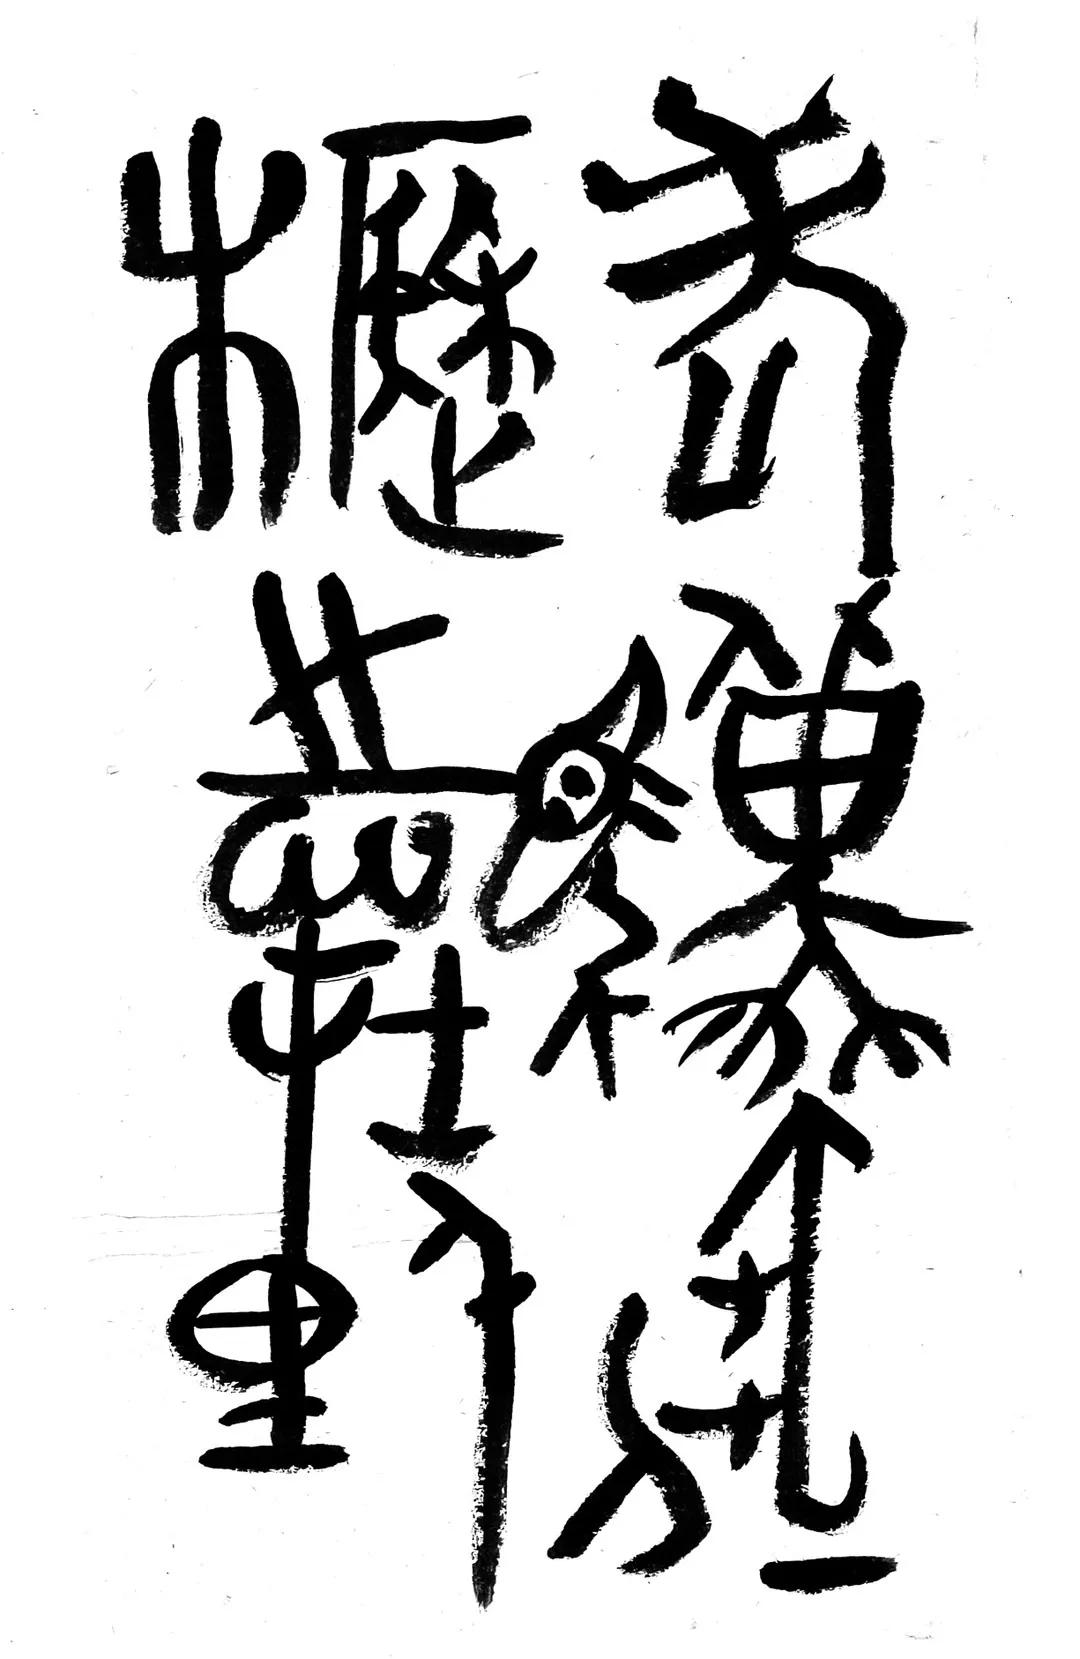 老驥伏
櫪志在千里